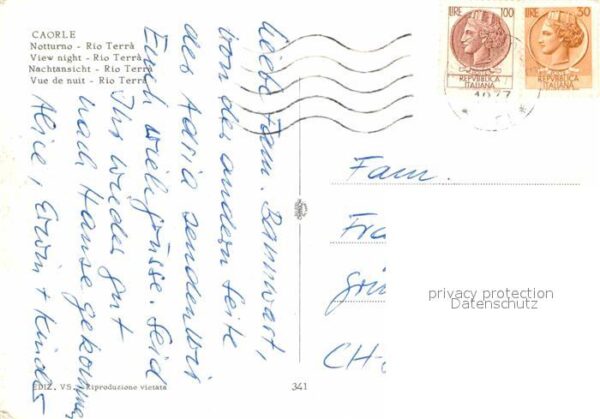 CAORLE
Notturno - Rio Terrà
View night - Rio Terrà
Nachtansicht - Rio Terrà
Vue de nuit - Rio Terrà
Liebe Fam. Bannwart,
von der andern Seite
der Adria senden wir
Euch viele Grüsse. Seid
Ihr wieder gut
nach Hause gekommen
Alice, Erwin + Kinder
EDIZ. VS. - Riproduzione vietata
341
LIRE 100
REPVBBLICA
ITALIANA
LIRE 30
REPVBBLICA
ITALIANA
Fam.
Fra
CH-
privacy protection
Datenschutz